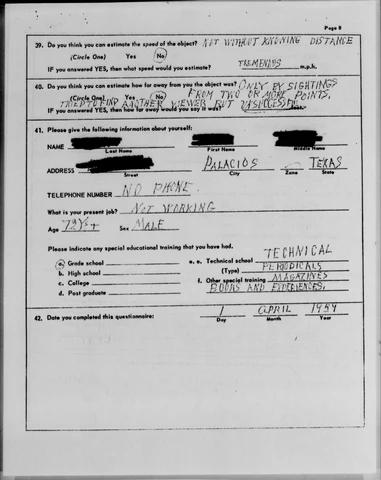 Page 8
39. Do you think you can estimate the speed of the object? NOT WITHOUT KNOWING DISTANCE
(Circle One) Yes No
IF you answered YES, then what speed would you estimate? TREMENDUS m.p.h.
40. Do you think you can estimate how far away from you the object was? ONLY BY SIGHTINGS
(Circle One) Yes No FROM TWO OR MORE POINTS,
TRIED TO FIND ANOTHER VIEWER BUT
IF you answered YES, then how far away would you say it was?
41. Please give the following information about yourself:
NAME
Last Name First Name Middle Name
ADDRESS PALACIOS TEXAS
Street City Zone State
TELEPHONE NUMBER NO PHONE.
What is your present job? NOT WORKING
Age 72 Sex MALE
Please indicate any special educational training that you have had.
a. Grade school e. Technical school TECHNICAL
b. High school (Type) PERIODICALS
c. College f. Other special training MAGAZINES
d. Post graduate BOOKS AND EXPERIENCES.
42. Date you completed this questionnaire: 1 APRIL 1959
Day Month Year